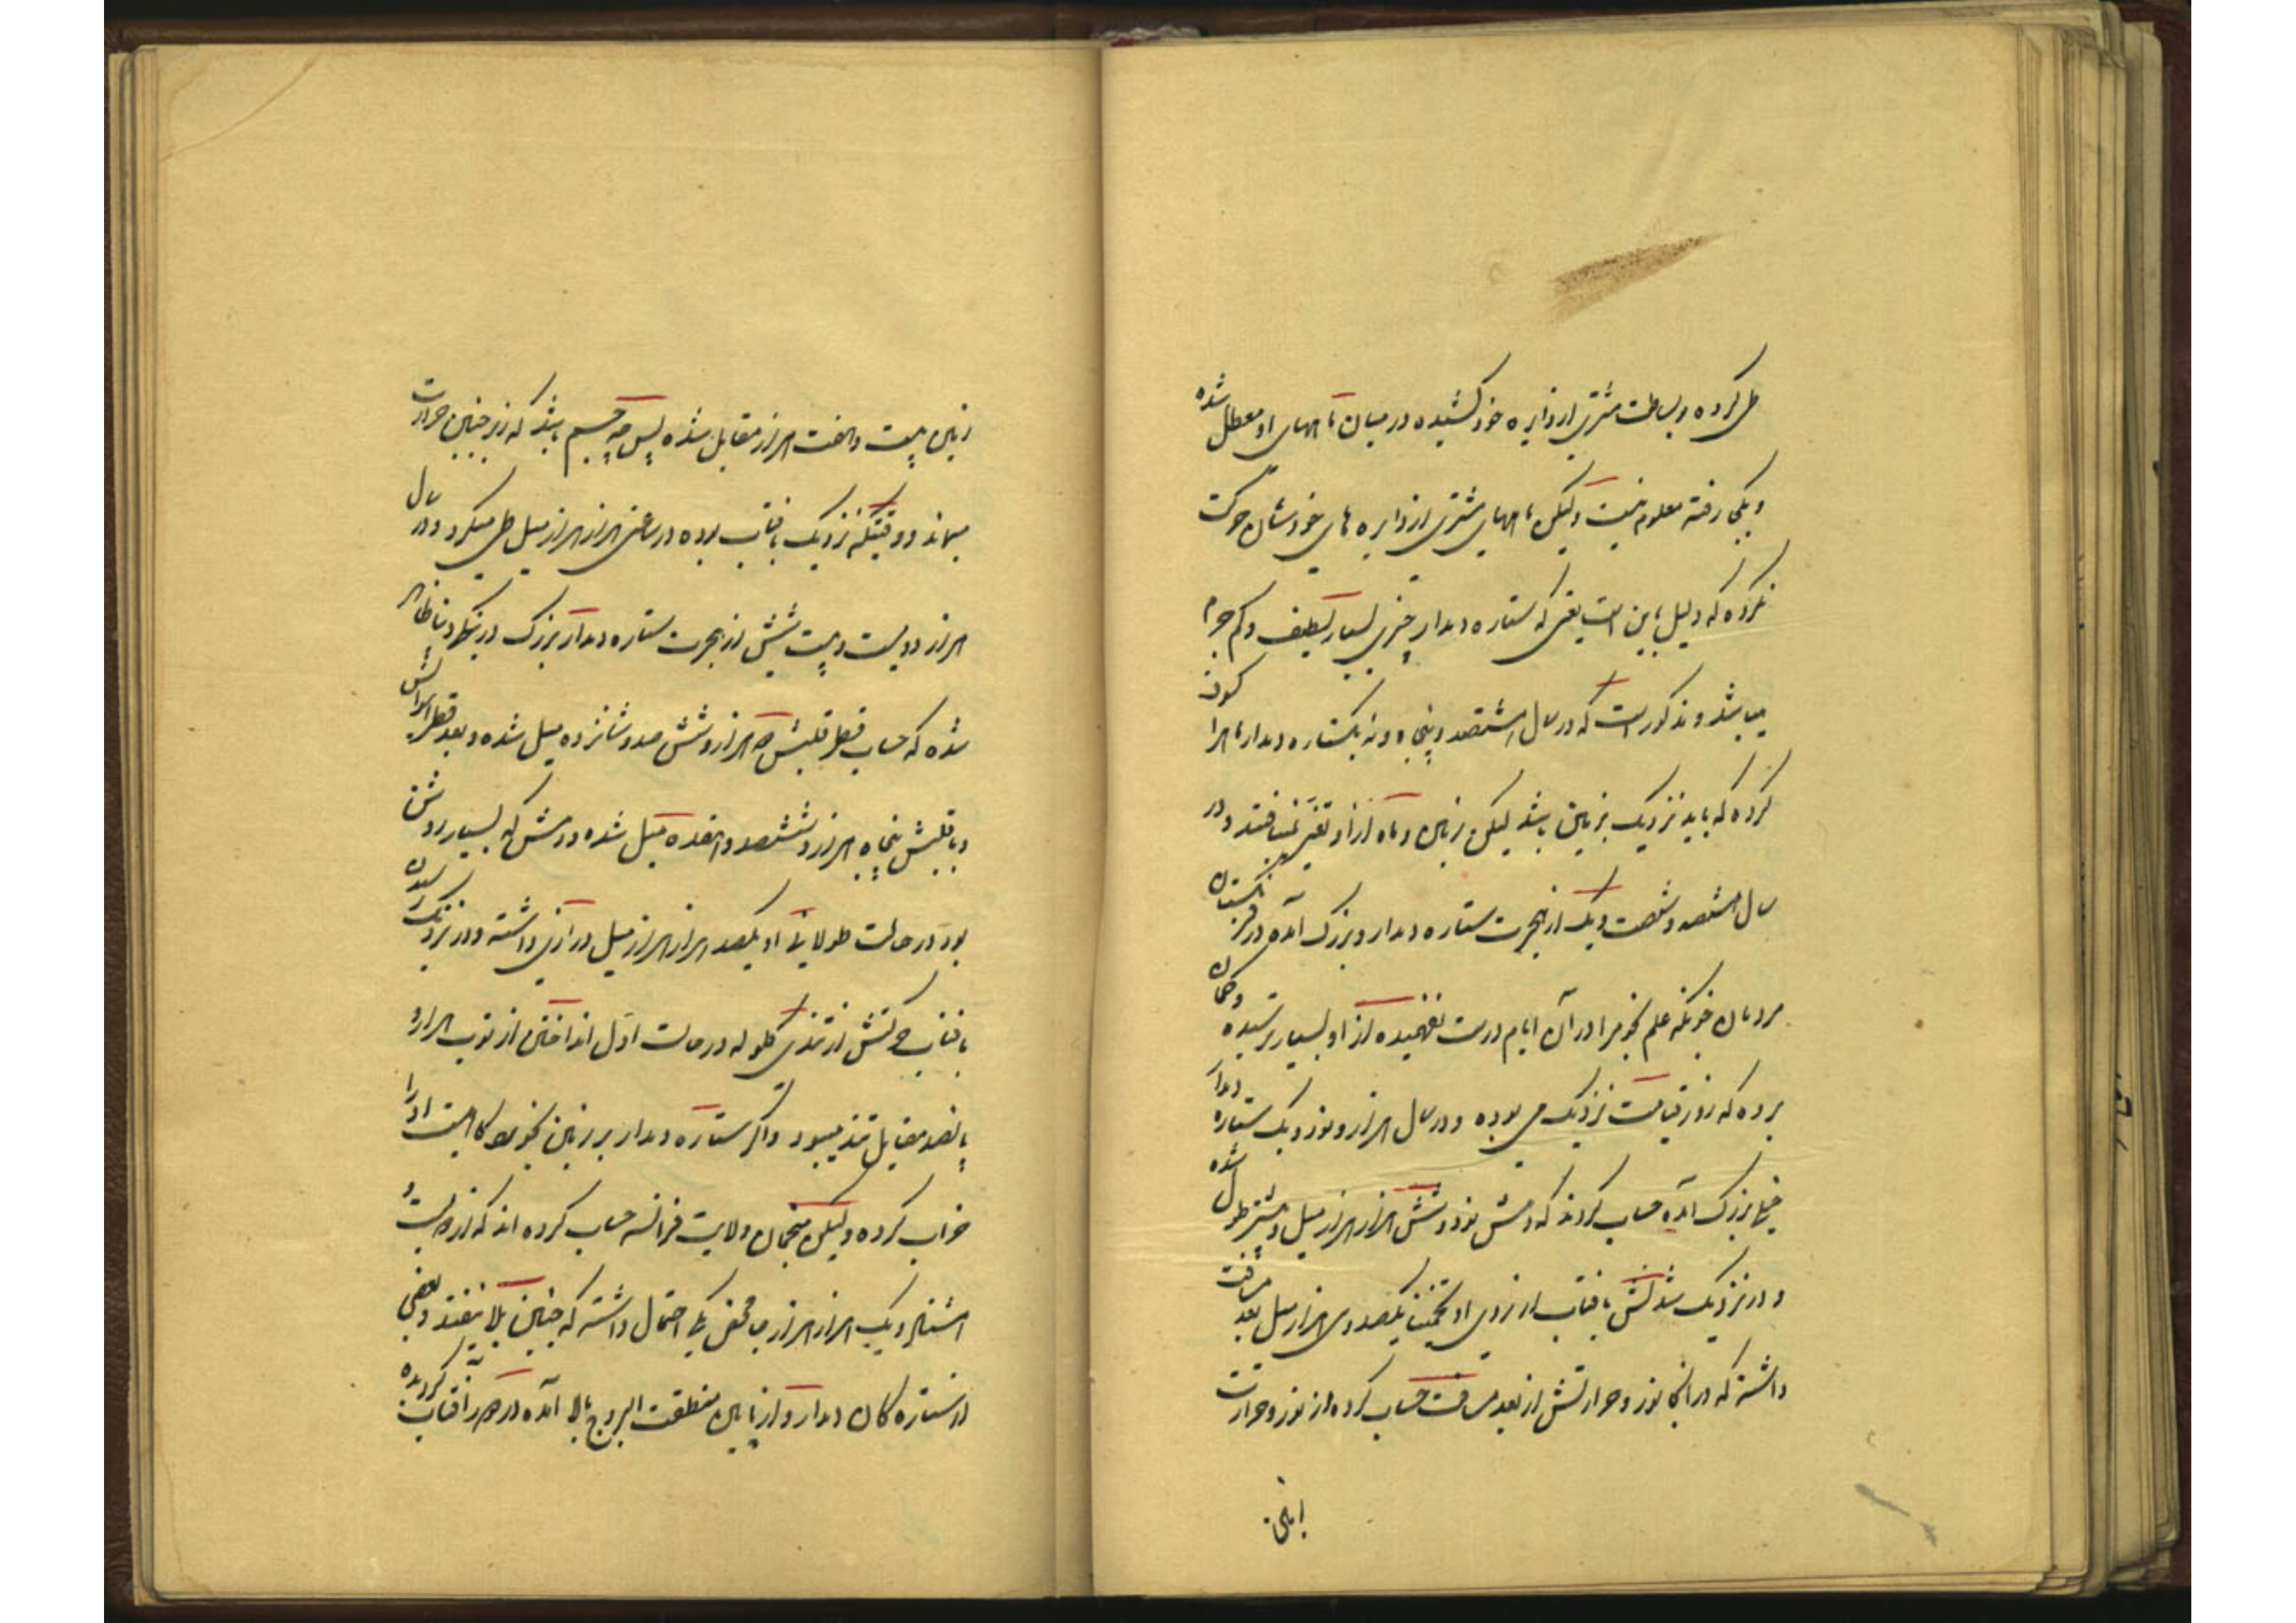 طی کرده وبساطت مشتری از دایره خود کشیده در میان ماههای او معطل شده
وبکجا رفته معلوم نیست ولیکن ماههای مشتری از دایره های خودشان حرکت
نکرده که دلیل باین است یعنی که ستاره دمدار چیزی بسیار لطیف وکم جرم
میباشد ومذکور است که در سال هشتصد وپنجاه ونه یکستاره دمدار ماهرا کسوف
کرده که باید نزدیک بزمین باشد لیکن زمین وماه از او تغیّر نمییافتند ودر
سال هشتصد وشصت ویک از هجرت ستاره دمدار وبزرگ آمده در فرنگستان
مردمان چونکه علم نجومرا در آن ایام درست نفهمیده از او بسیار ترسیده وگمان
برده که روز قیامت نزدیک می بوده ودر سال هزار ونود ویک ستاره دمدار
خیلی بزرگ آمده حساب کردند که دمش نود وشش هزار هزار میل وبیشتر طول شده
ودر نزدیک شدنش بآفتاب از روی او تخمیناً یکصد وسی هزار میل بعد مسافت
داشته که در انجا نور وحرارتش از بعد مسافت حساب کرده از نور وحرارت
زمین بیست وهفت هزار مقابل شده پس چه جسم باشد که زیر چنین حرارت
میماند ووقتیکه نزدیک بآفتاب بوده در ساعتی هزار هزار میل طی میکرد ودر سال
هزار دویست وبیست شش از هجرت ستاره دمدار بزرگ در ینگی دنیا ظاهر
شده که حساب قطر قلبش چهار هزار وشش صد وشانزده میل شده وبعد قطر
وبا قلبش پنجاه هزار وششصد وهفده میل شده ودمش که بسیار روشن
بود در حالت طولانی او یکصد هزار هزار میل درازی داشته ودر نزدیک رسیدن
بآفتاب حرکتش از تندی گلوله در حالت اوّل انداختن از توپ هزار و
پانصد مقابل تند میبود واگر ستاره دمدار بر زمین بخورد کاهست او را
خراب کرده ولیکن منجّمان ولایت فرانسه حساب کرده اند که از دویست و
هشتاد ویک هزار هزار بمحض یکی احتمال داشته که چنین بلا بیفتد وبعضی
از ستاره گان دمدار از پایین منطقت البروج بالا آمده در دور آفتاب گردیده